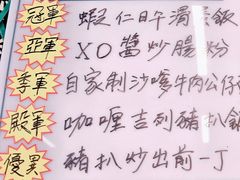 冠軍 蝦仁日午滑蛋飯
亞軍 XO醬炒腸粉
季軍 自家制沙嗲牛肉公仔
殿軍 咖喱吉列豬扒飯
優異 豬扒炒出前一丁